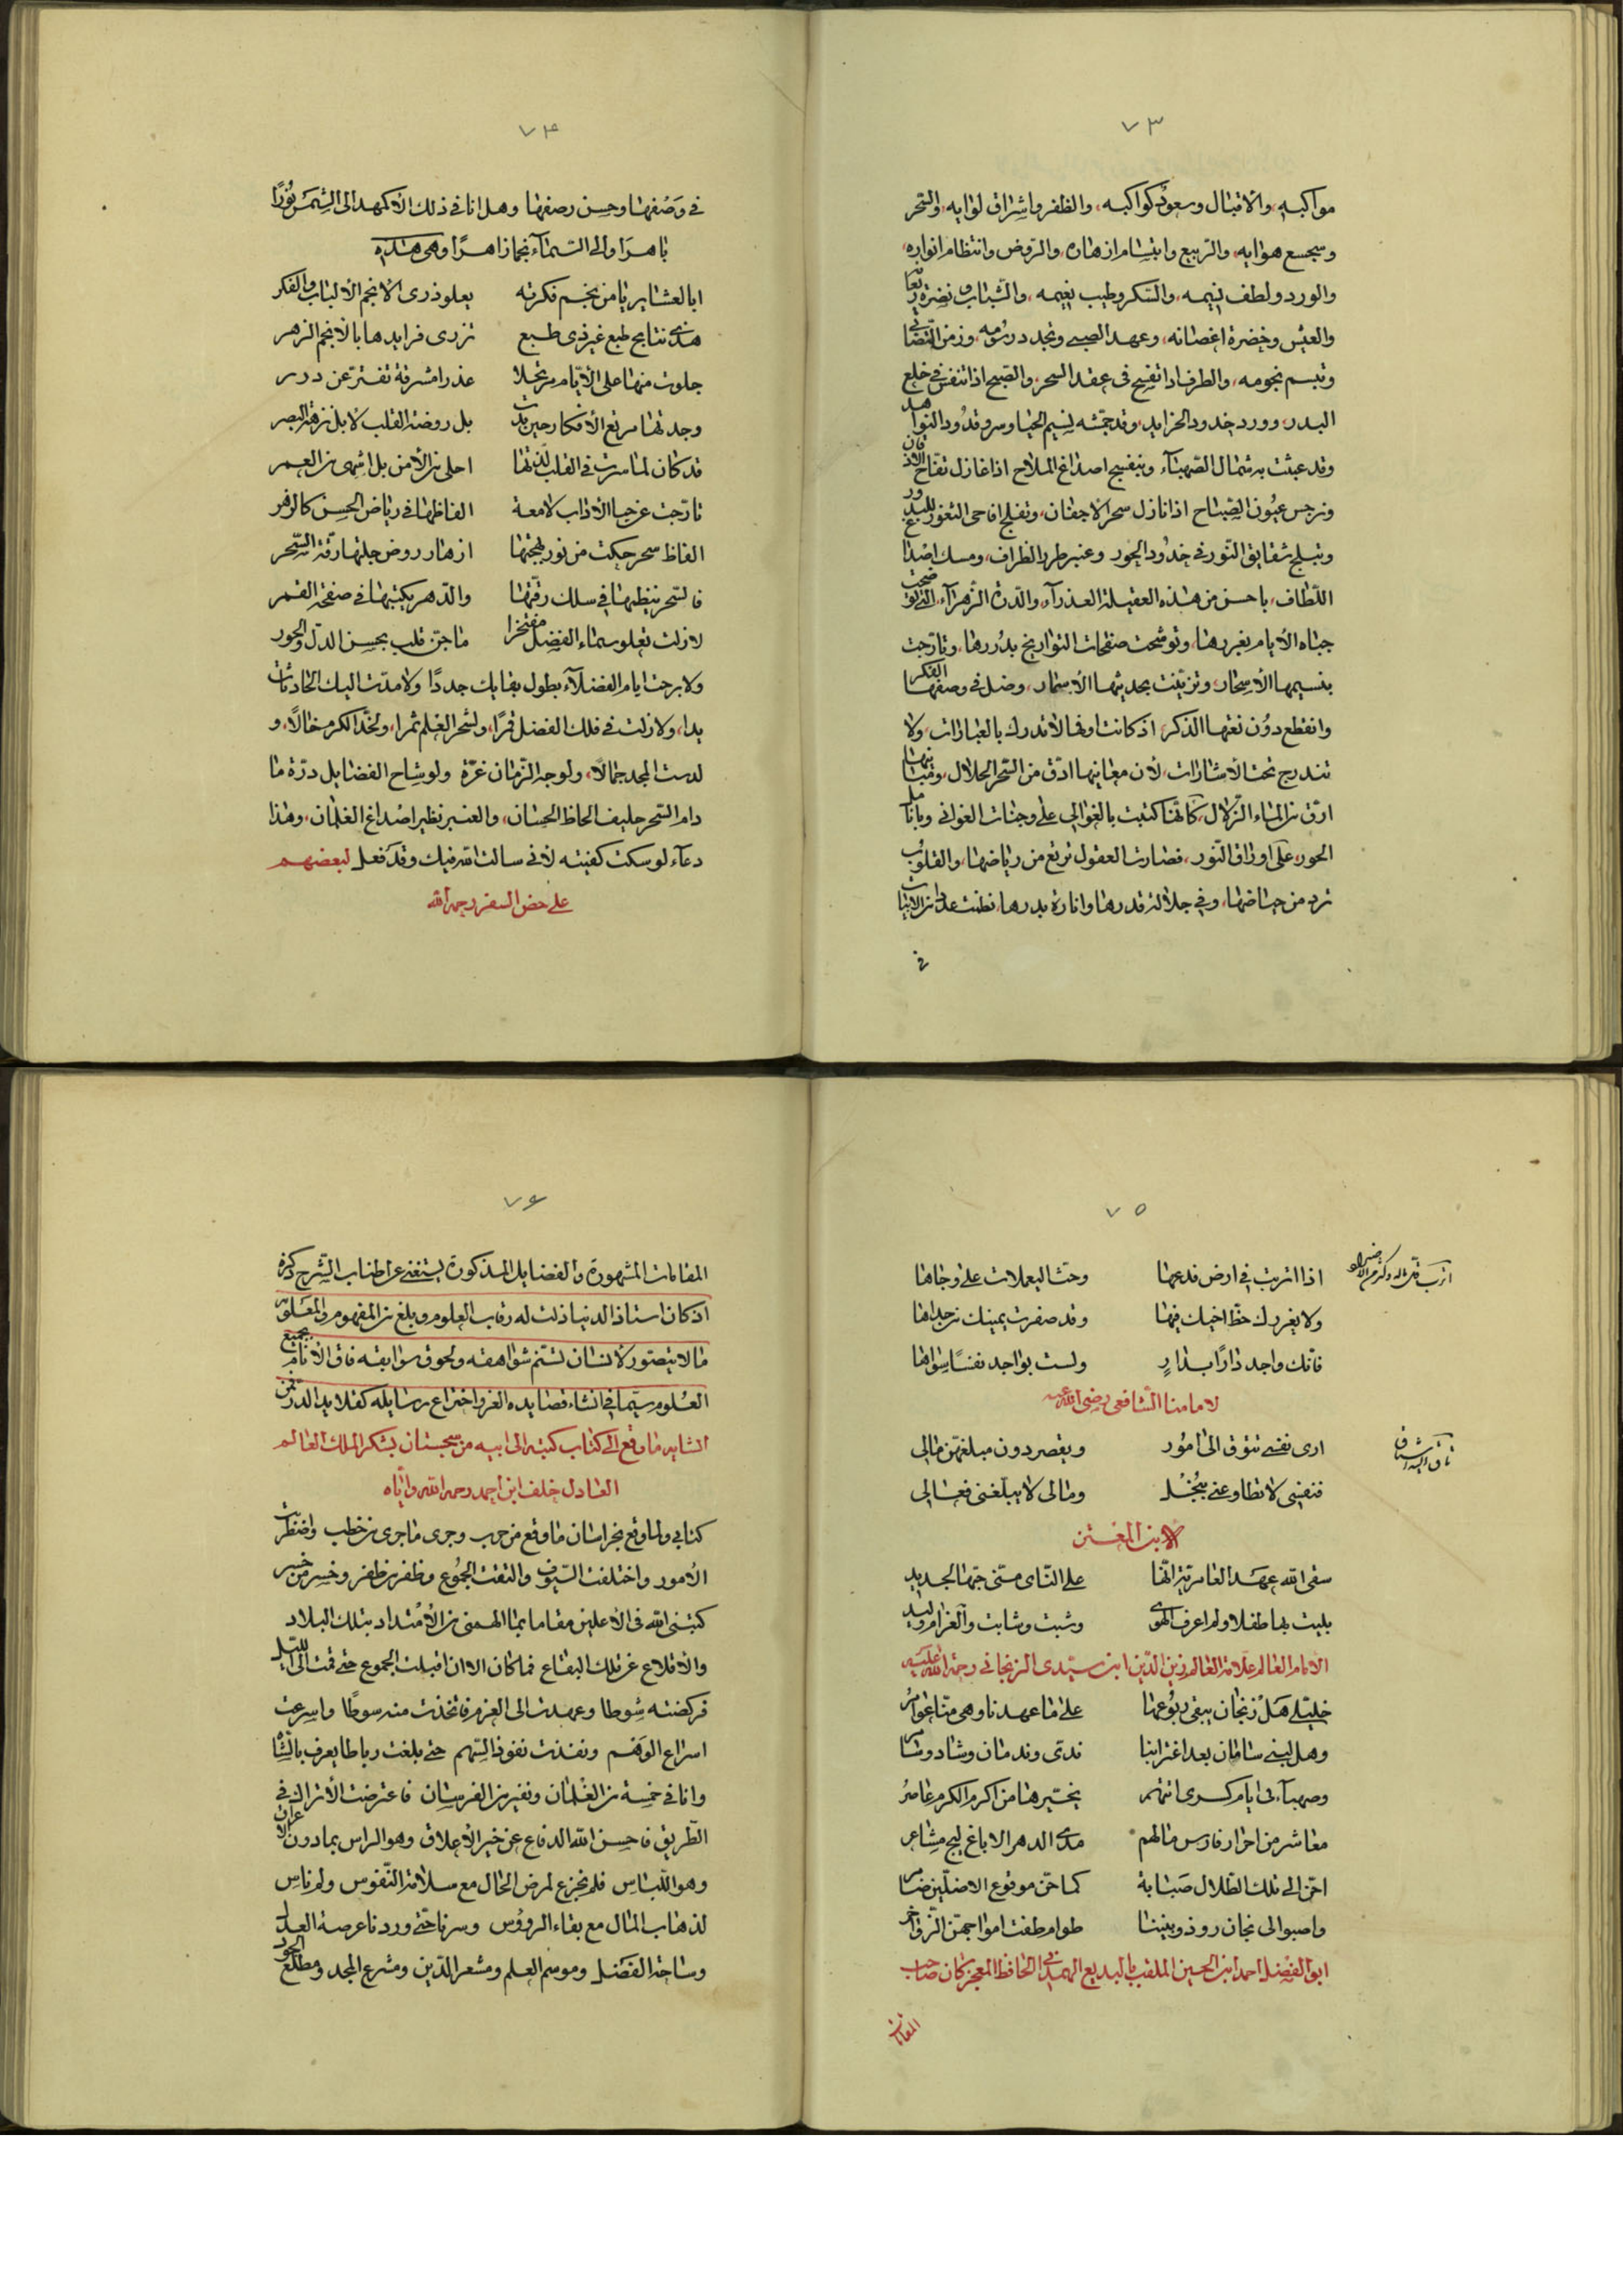 ٧٣
مواكبه، والاقبال وسعود كواكبه، والظفر واشراق لوايه، والسحر
وسجسج هوايه، والربيع وابتسام ازهاره، والروض وانتظام انواره،
والورد ولطف نسيمه، والسكر وطيب نعيمه، والشباب ونضرة
والعيش وخضرة اغصانه، وعهد الصبى وتجدد رسومه، وزمن التصابي
وتبسم نجومه، والطرف اذا تفسح في عقد السحر، والصبح اذا تنفس في خلع
البدر، وورد خدود الخرايد، وقد جمشه نسيم الحيا وسرو قدود النواهد
وقد عبثت به شمال الصهباء، وبنفسج اصداغ الملاح اذا غازل تفاح
ونرجس عيون الصباح اذا نازل سحر الاجفان، وتفلج اقاحى الثغور
وتبلج شقايق النور في خدود الحور، وعنبر طرر الظراف، ومسك اصداغ
اللطاف، باحسن من هذه العقيلة العذراء، والدرة الزهراء، التي
جباه الايام بغررها، وتوشحت صفحات التواريخ بدررها، وتارجت
بنسيمها الاسحار، وتزينت بحديثها الاسمار، وضل في وصفها الفكر
وانقطع دون نعتها الذكر، اذ كانت اوفى الاتدرك بالعبارات، ولا
تندرج تحت الاشارات، لان معانيها ادق من السحر الحلال، ومبانيها
ارق من الماء الزلال، كانها كتبت بالغوالي على وجنات الغواني وبانامل
الحور، على اوراق النور، فصارت العقول ترتع من رياضها، والقلوب
ترد من حياضها، وفي جلالة قدرها وانارة بدرها، نظمت عدة من الابيات
في
٧٤
في وصفها وحسن رصفها وهل انا في ذلك الا كمهد الى الشمس نورا
باهرا والى السماء نجما زاهرا وهى هذه
ابا العشاير يا من نجم فكرته يعلو ذرى الانجم الالباب والفكر
هذى نتايج طبع غير ذى طبع تزرى فرايدها بالانجم الزهر
جلوت منها على الايام مرتجلا عذرا مشرقة تفتر عن درر
وجدتها مربع الافكار حين بدت بل روضة القلب لا بل نزهة البصر
قد كان لما سرت في القلب لذتها احلى من الامن بل اشهى من العمر
تارجت عرجا الاداب لامعة الفاظها في رياض الحسن كالزهر
الفاظ سحر حكت من نور بهجتها ازهار روض جلتها رقة السحر
فالسحر ينظمها في سلك رقتها والدهر يكتبها في صفحة القمر
لازلت تعلو سماء الفضل مفتخرا ما جن قلب بحسن الدل والحور
ولا برحت ايام الفضلاء بطول بقايك جددا ولا مدت اليك الحادثات
يدا، ولا زلت في فلك الفضل قمرا، ولشجر العلم ثمرا، ولخد الكرم خالا، و
لدست المجد جمالا، ولوجه الزمان غرة ولوشاح الفضايل درة ما
دام السحر حليف الحاظ الحسان، والعنبر نظير اصداغ الغلمان، وهذا
دعاء لو سكت كفيته لانى سالت الله فيك وقد فعل لبعضهم
على حض السفر رحمه الله
٧٥
اذا اتربت في ارض فدعها وحث اليعملات على وجاها
ولا يغررك حظ اخيك فيها وقد صفرت يمينك من جداها
فانك واجد دارا بدار ولست بواجد نفسا سواها
لامامنا الشافعي رضي الله عنه
ارى نفسي تتوق الى امور ويقصر دون مبلغهن مالى
فنفسى لا تطاوعنى ببخل ومالى لا يبلغنى فعالى
لابن المعتز
سقى الله عهد العامرية انها على الناى منى حبها لجديد
بليت بها طفلا ولم اعرف الهوى وشبت وشابت والغرام وليد
الامام العالم علامة العالم زين الدين ابن سيدى الزنجاني رحمة الله عليه
خليلى هل زنجان يبقى ربوعها على ما عهدنا وهى منا عوامر
وهل لبنى سامان بعد اغترابنا ندى وندمان وشاد وسامر
وصهباء في ايام كسرى انتهم بخسيرها من اكرم الكرم عاصر
معاشر من احرار فارس مالهم مدى الدهر الا باغ لج مشاعر
احن الى تلك الطلال صبابة كما حن موقوع الاضلين ضامر
واصبو الى نجان روذ وبيننا طوام طفت امواجهن الزواخر
ابو الفضل احمد ابن الحسين الملقب بالبديع الهمداني الحافظ المعجز كان صاحب
المقامات
تاق اليه اشتاق
٧٦
المقامات المشهورة والفضايل المذكورة يستغني عن اطناب الشرح ذكره
اذ كان استاذ الدنيا ذلت له رقاب العلوم وبلغ من المفهوم والمعلوم
ما لا يتصور لانسان تسنم شواهقه ولحوق سوابقه فاق الانام بجميع
العلوم سيما في انشاء قصايده الغر واختراع رسايله كقلايد الدرر فمن
انشايه ما وقع الى كتاب كتبه الى ابيه من سجستان يشكر الملك العالم
العادل خلف ابن احمد رحمه الله واياه
كتابي ولما وقع بخراسان ما وقع من حرب وجرى ما جرى من خطب واضطربت
الامور واختلفت السيوف والتقت الجموع وظفر من ظفر وخسر من خسر
كتبنى الله في الاعلين مقاما بما الهمنى من الامتداد بتلك البلاد
والاقلاع عن تلك البقاع فما كان الا ان اقبلت الجموع حتى قمت الى الليل
فركضته شوطا وعهدت الى العزم فاتخذت منه سوطا واسرعت
اسراع الوهم ونفذت نفوذ السهم حتى بلغت رباطا يعرف بالشاه
وانا في خمسة من الغلمان ونفير من الفرسان فاعترضت الاتراك في
الطريق فاحسن الله الدفاع عن خير الاعلاق وهو الراس بما دون الاعراض
وهو اللباس فلم نجزع لمرض الحال مع سلامة النفوس ولم ناس
لذهاب المال مع بقاء الرووس وسرنا حتى وردنا عرصة العدل
وساحة الفضل وموسم العلم ومشعر الدين ومشرع المجد ومطلع الجود